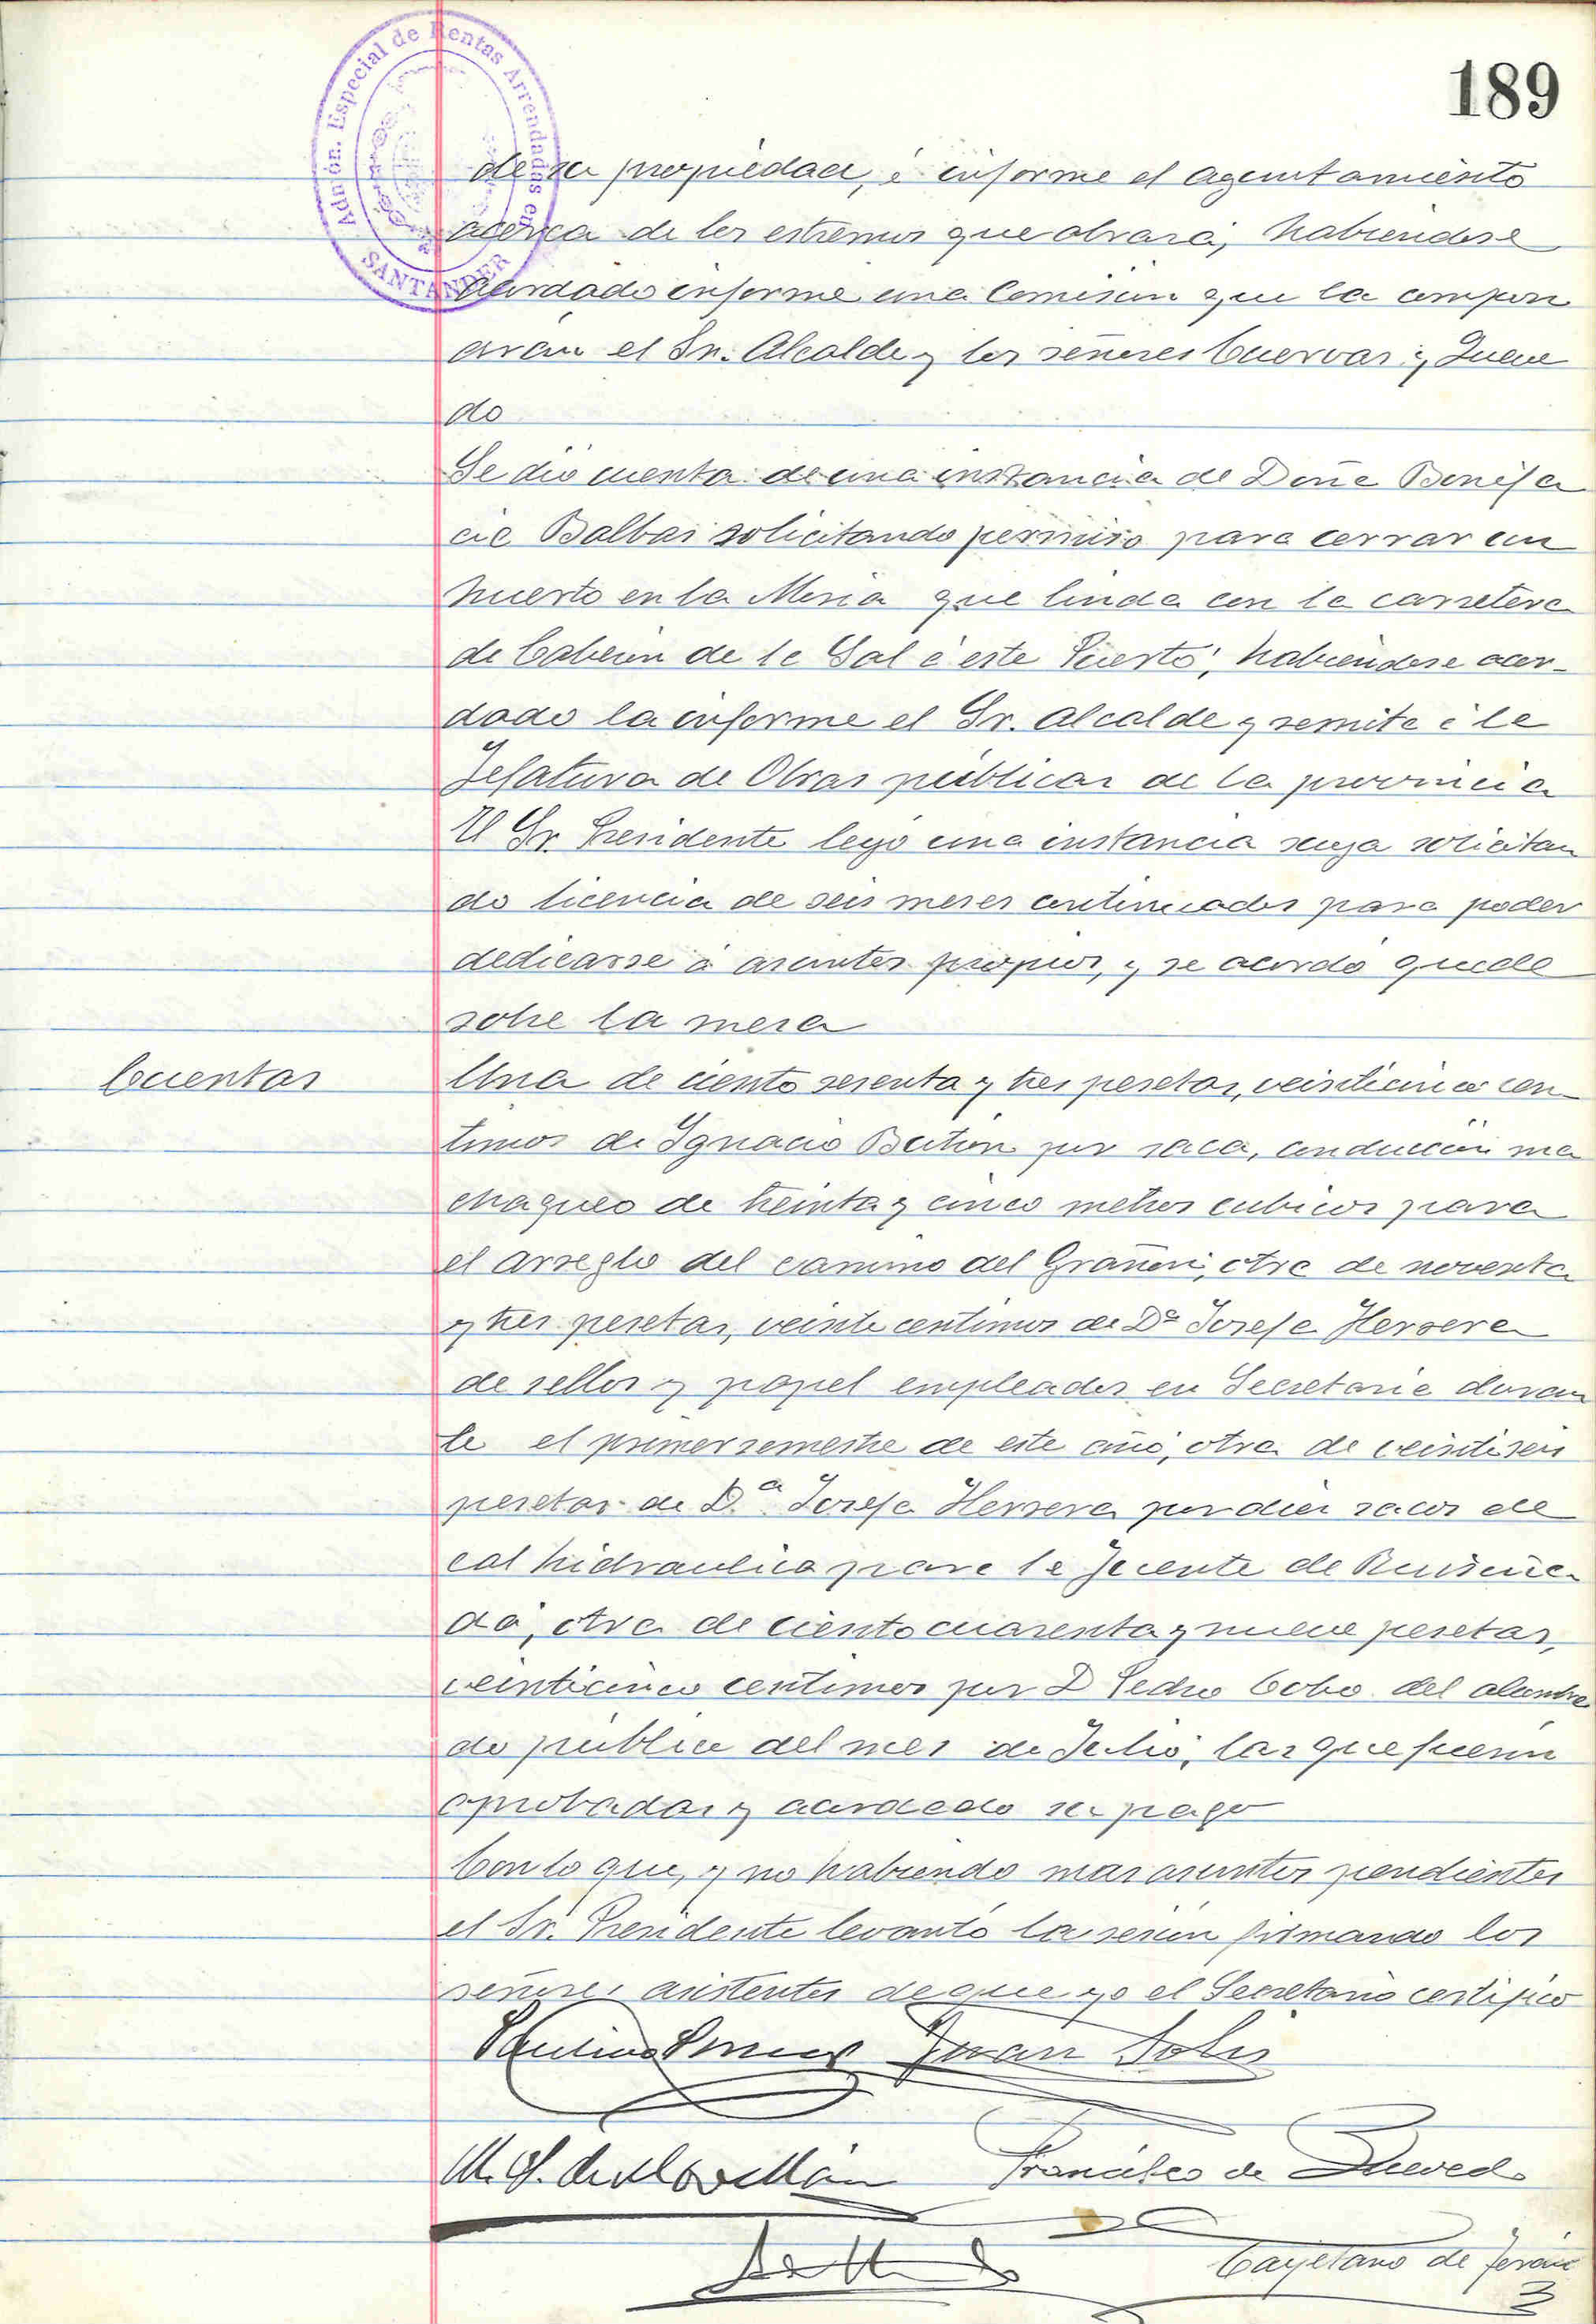 189
Admón. Especial de Rentas Arrendadas en
SANTANDER
de su propiedad, é informe el ayuntamiento
acerca de los estremos que abraza, habiendose
acordado informe una Comision que la compon
drán el Sr. Alcalde y los señores Cuervas y Queve
do
Se dió cuenta de una instancia de Doña Bonifa
cia Balbas solicitando permiso para cerrar un
huerto en la Mesia que linda con la carretera
de Cabezon de la Sal á este Puerto, habiendose acor-
dado la informe el Sr. Alcalde y remita á la
Jefatura de Obras públicas de la provincia
El Sr. Presidente leyó una instancia suya solicitan
do licencia de seis meses continuados para poder
dedicarse á asuntos propios, y se acordó quede
sobre la mesa
Cuentas
Una de ciento sesenta y tres pesetas, veinticinco cen-
timos de Ignacio por saca, conducción ma
chaqueo de treinta y cinco metros cubicos para
el arreglo del camino del otra de noventa
y tres pesetas, veinte centimos de Dª Josefa Herrera
de sellos y papel empleados en Secretaria duran
te el primer semestre de este año, otra de veintiseis
pesetas de D.ª Josefa Herrera por diez sacos de
cal hidraulica para la fuente de Ruiseña-
da, otra de ciento cuarenta y nueve pesetas,
veinticinco centimos por D Pedro Cobo del alumbra
do público del mes de Julio, las que fueron
aprobadas y acordado su pago
Con lo que, y no habiendo mas asuntos pendientes
el Sr. Presidente levantó la sesión firmando los
señores asistentes de que yo el Secretario certifico
Juan Solis
Francisco de Quevedo
Cayetano de Terán